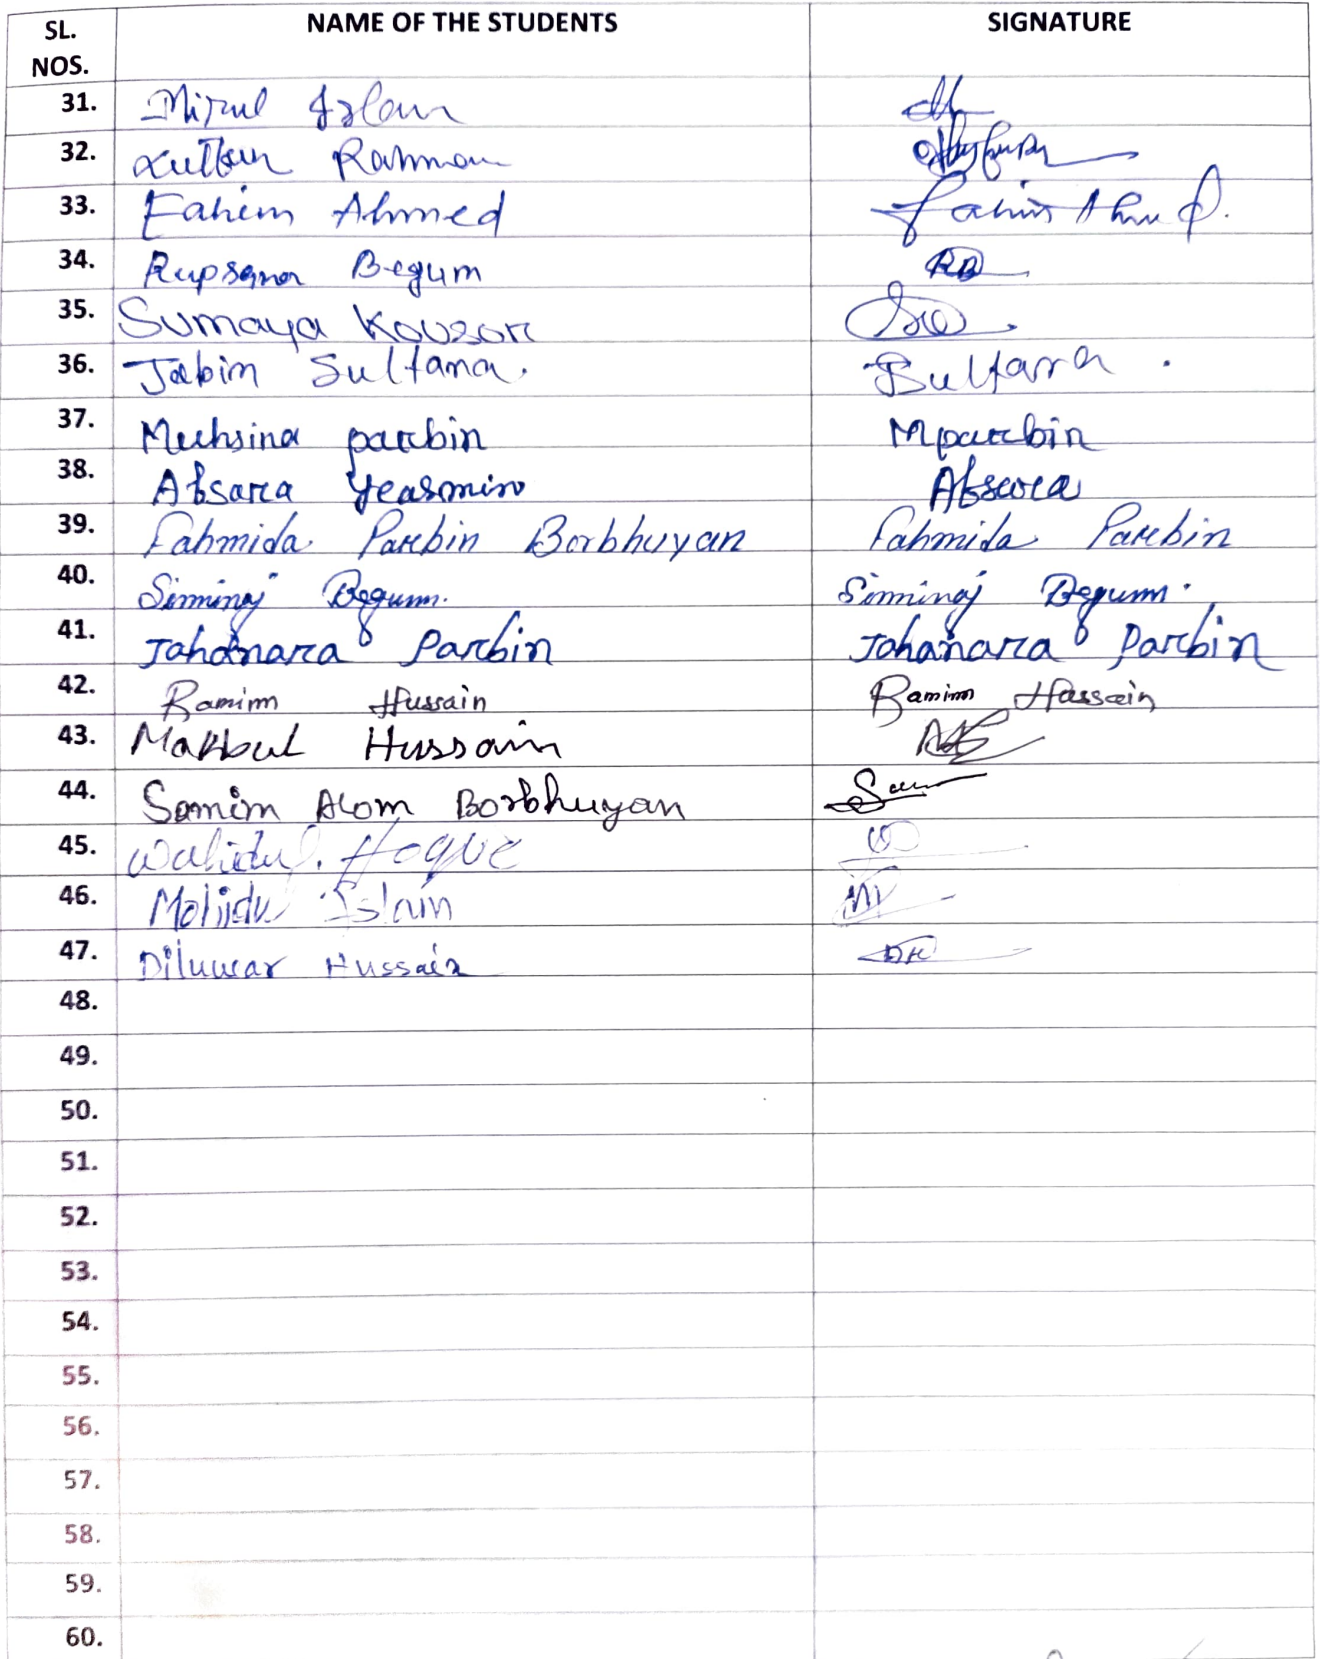 SL. NOS. NAME OF THE STUDENTS SIGNATURE
31. Mizul Islam
32. Lutfur Rahman
33. Fahim Ahmed Fahim Ahmed.
34. Rupsana Begum RB
35. Sumaya Kousor
36. Jabin Sultana. Sultana .
37. Muhsina parbin Mparbin
38. Absara Yeasmin Absara
39. Fahmida Parbin Borbhuyan Fahmida Parbin
40. Siminaj Begum. Siminaj Begum.
41. Jahanara Parbin Jahanara Parbin
42. Ramim Hussain Ramim Hussain
43. Makbul Hussain
44. Samim Alom Borbhuyan Sam
45. Wahidul. Hoque
46. Molijdul Islam MI
47. Diluwar Hussain DH
48.
49.
50.
51.
52.
53.
54.
55.
56.
57.
58.
59.
60.